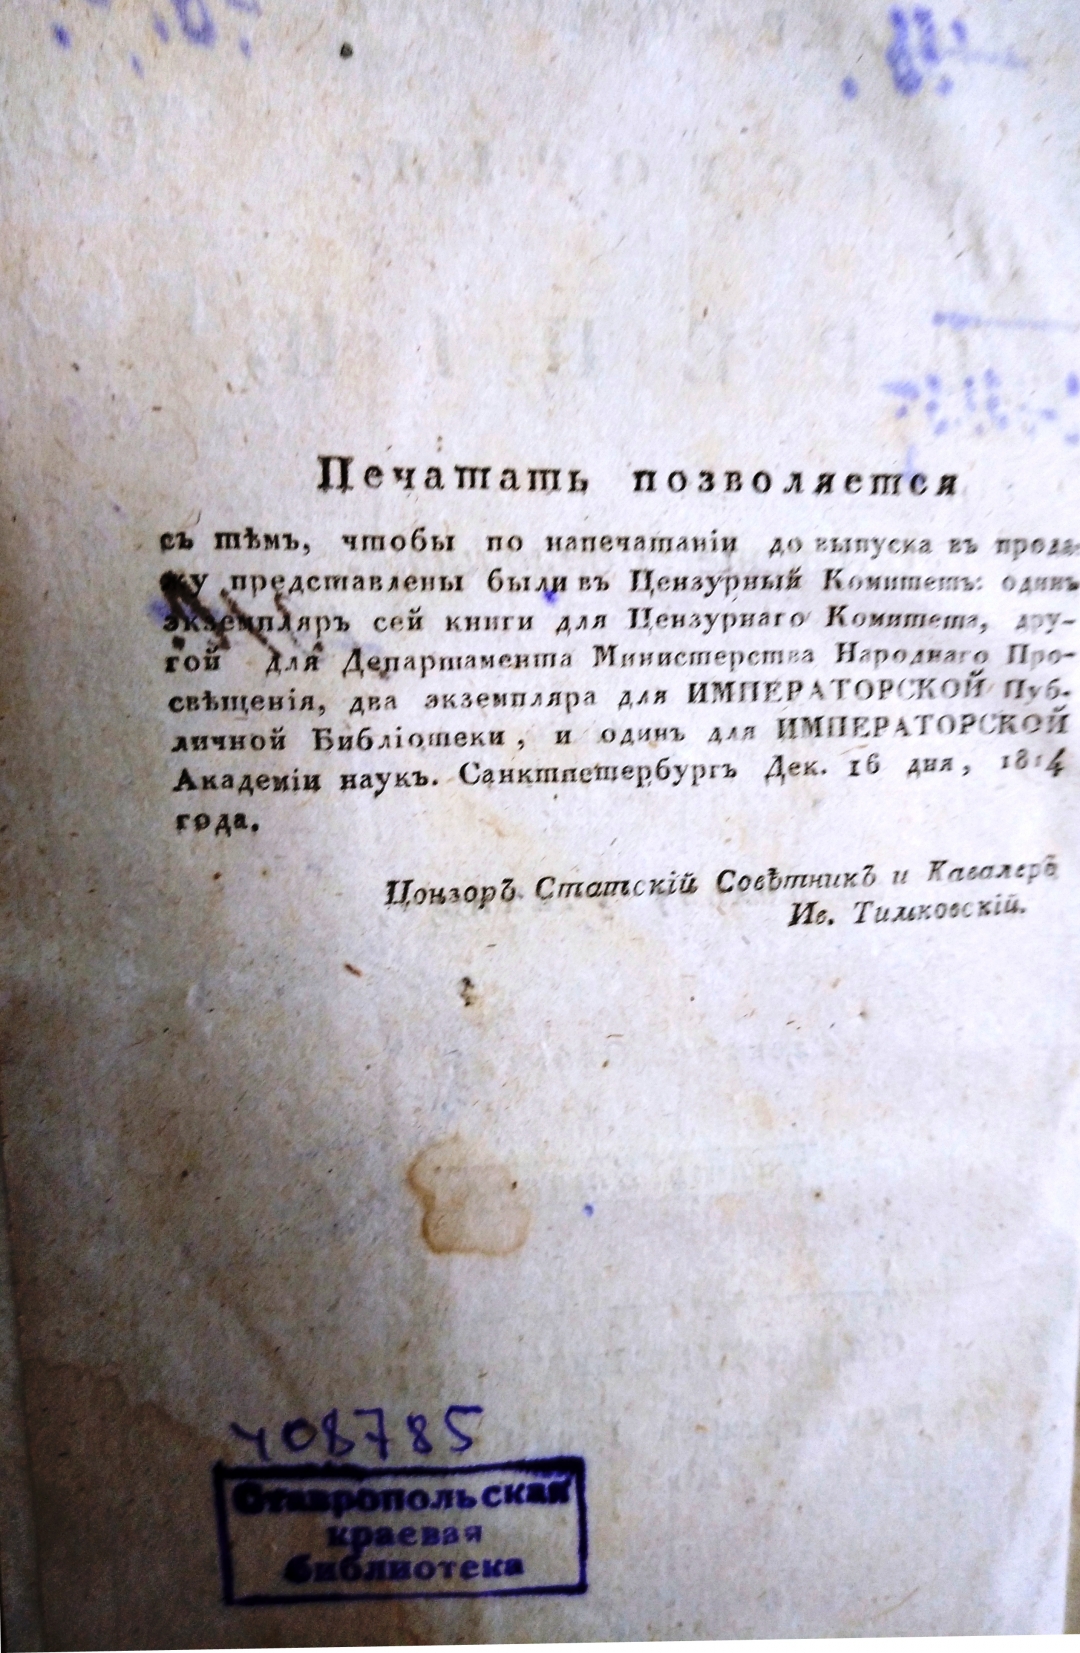 Печатать позволяется
съ тѣмъ, чтобы по напечатаніи до выпуска въ прода-
жу представлены были въ Цензурный Комитетъ: одинъ
экземпляръ сей книги для Цензурнаго Комитета, дру-
гой для Департамента Министерства Народнаго Про-
свѣщенія, два экземпляра для ИМПЕРАТОРСКОЙ Пуб-
личной Библіотеки, и одинъ для ИМПЕРАТОРСКОЙ
Академіи наукъ. Санктпетербургъ Дек. 16 дня, 1814
года.
Цонзоръ Статскій Совѣтникъ и Кавалеръ
Ив. Тимковскій.
408785
Ставропольская
краевая
библиотека